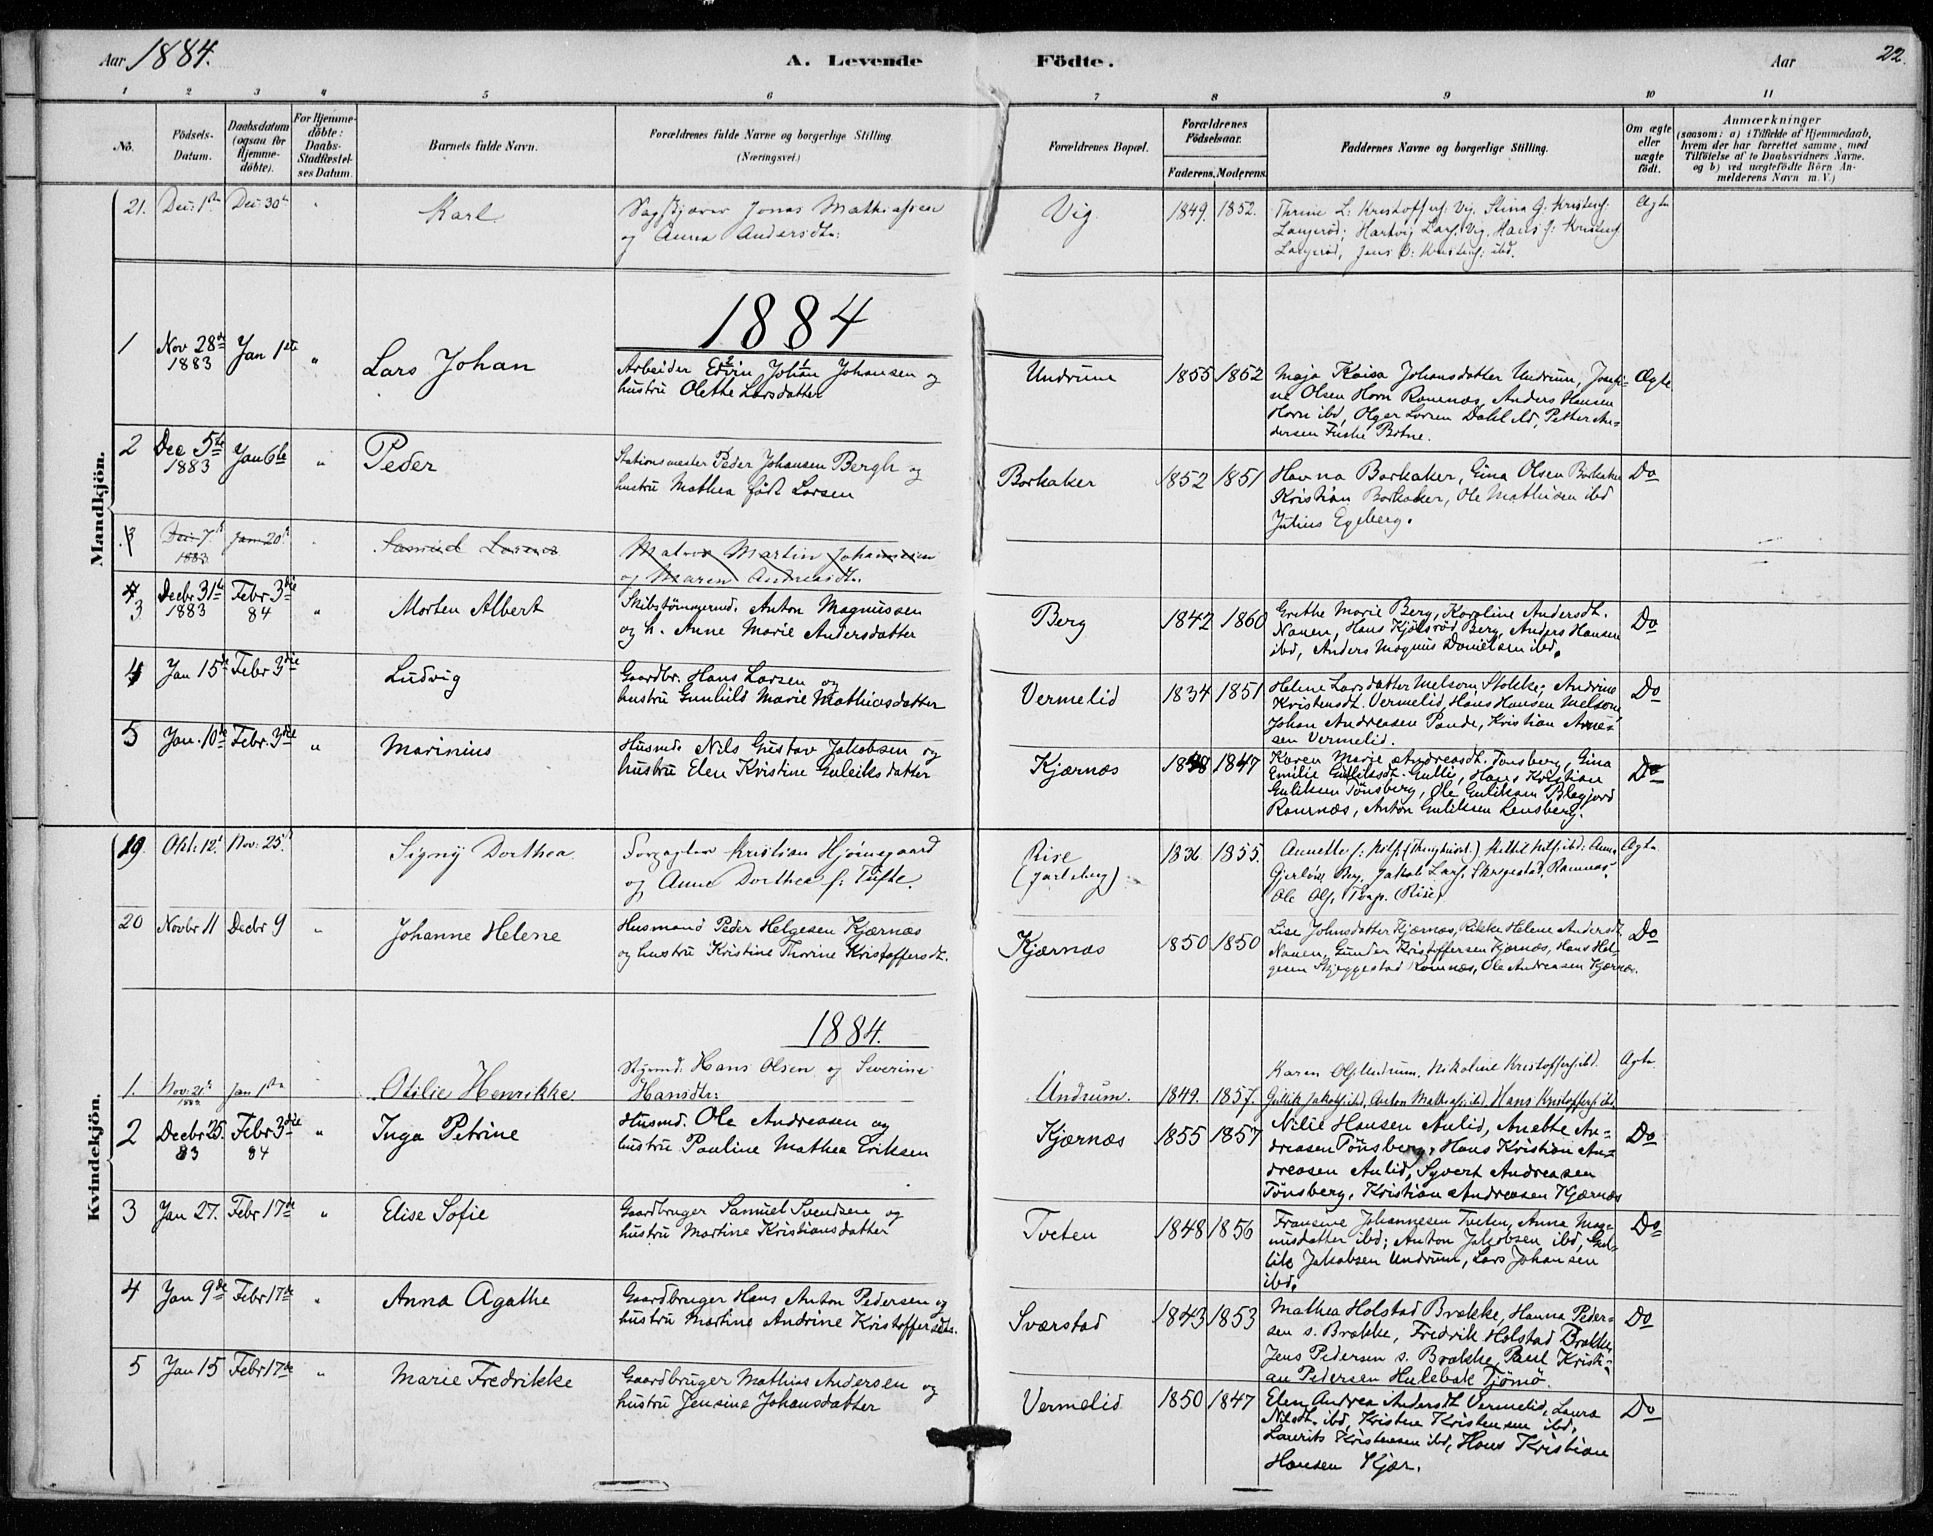 Aar 1884. A. Levende Födte. Aar 22.
1 2 3 4 5 6 7 8 9 10 11
No. Födsels-Datum. Daabsdatum (ogsaa for Hjemmedöbte). For Hjemmedöbte: Daabs-Stadfæstelses Datum. Barnets fulde Navn. Forældrenes fulde Navne og borgerlige Stilling. (Næringsvei.) Forældrenes Bopæl. Forældrenes Födselsaar. Faderens. Moderens. Faddernes Navne og borgerlige Stilling. Om ægte eller uægte födt. Anmærkninger (saasom: a) i Tilfælde af Hjemmedaab, hvem der har forrettet samme, med Tilföielse af to Daabsvidners Navne, og b) ved uægtefödte Börn Anmelderens Navn m. V.)
Mandkjön.
21. Dec: 1ste Dec 30te " Karl Sagskjærer Jonas Mathiassen
og Anna Andersdtr: Vig 1849. 1852. Thrine L: Kristoffers: Vig, Stina G: Kristens:
Langerød, Hartvig Lars: Vig, Hans J: Kristens:
Langerød, Jens O: Kristens: ibd. Ægte
1884
1 Nov 28de 1883 Jan 1ste " Lars Johan Arbeider Edvin Johan Johansen og
hustru Olethe Larsdatter Undrum 1855 1852 Maja Kaisa Johansdatter Undrum, Josefi-
ne Olsen Horn Ramnæs, Anders Hansen
Horn ibd, Olger Larsen Dahl ibd, Petter An-
dersen Fuske Botne. Ægte
2 Dec 5te 1883 Jan 6te " Peder Stationsmester Peder Johansen Bergh og
hustru Mathea født Larsen Barkaker 1852 1851 Hanna Barkaker, Gina Olsen Barkaker
Kristian Barkaker, Ole Mathisen ibd
Julius Egeberg. Do
3 Dec: 7de 1883 Jan 20de Samuel Laurits Matros Martin Johannesen
og Maren Andreasdtr.
3 Decbr 31te 1883 Febr 3die 84 " Morten Albert Skibstømmermd. Anton Magnussen
og h. Anne Marie Andersdatter Berg 1842 1860 Grethe Marie Berg, Karoline Andersdt.
Nauen, Hans Kjølsrød Berg, Anders Hansen
ibd, Anders Magnus Danielsen ibd. Do
4 Jan 15de Febr 3die Ludvig Gaardbr. Hans Larsen og
hustru Gunhild Marie Mathiasdatter Vermelid 1834 1851 Helene Larsdatter Melsom Stokke, Andrine
Kristensdt. Vermelid, Hans Hansen Melsom,
Johan Andreasen Pande, Kristian Arne-
sen Vermelid. Do
5 Jan. 10de Febr. 3die " Marinius Husmd. Nils Gustav Jakobsen og
hustru Elen Kristine Guleiksdatter Kjærnæs 1848 1847 Karen Marie Andreasdt. Tønsberg, Gina
Emilie Guliksdt. Gulli, Hans Kristian
Guliksen Tønsberg, Ole Guliksen Blegjord
Ramnæs, Anton Guliksen Lensberg. Do
Kvindekjön.
19. Okt. 12te Nov: 25de Signy Dorthea Forpagter Kristian Hjørnegaard
og Anne Dorthea f: Tufte. Rise
(Jarlsberg) 1836 1855. Annette Ægte
Ole Ols, Rise
20 Novbr 11 Decbr 9 " Johanne Helene Husmand Peder Helgesen Kjærnæs
og hustru Kristine Thorine Kristoffersdt. Kjærnæs 1850 1850 Lise Johnsdatter Kjærnæs, Rikke Helene Andersdt.
Nauen, Gunder Kristoffersen Kjærnæs, Hans Hel-
gesen Skjeggestad Ramnæs, Ole Andreasen Kjærnæs. Do
1884.
1. Nov: 21de 1883 Jan 1ste Otilie Henrikke Styrmd. Hans Olsen og Severine
Hansdtr: Undrum. 1849. 1857. Karen Ols: Undrum, Nikoline Kristoffers: ibd.
Gullik Jakobs: ibd, Anton Mathias: ibd, Hans Kristoffers: ibd Ægte
2 Decbr 25. 83 Febr 3die 84 " Inga Petrine Husmd. Ole Andreasen og
hustru Pauline Mathea Eriksen Kjærnæs 1855 1857 Nilie Hansen Aulid, Anette An-
dreasen Tønsberg, Hans Kristian An-
dreasen Aulid, Syvert Andreasen
Tønsberg, Kristian Andreasen Kjærnæs Do
3 Jan 27. Febr 17de " Elise Sofie Gaardbruger Samuel Svendsen og
hustru Martine Kristiansdatter Tveten 1848 1856 Fransine Johannesen Tveten, Anna Mag-
nusdatter ibd; Anton Jakobsen ibd, Gul-
lik Jakobsen Undrum, Lars Johansen
ibd. Do
4 Jan 9de Febr 17de " Anna Agathe Gaardbruger Hans Anton Pedersen og
hustru Martine Andrine Kristoffersdtr. Sværstad 1843 1853 Mathea Holstad Brække, Hanna Peder-
sen s. Brække, Fredrik Holstad Brække
Jens Pedersen s. Brække, Paul Kristi-
an Pedersen Hulebak Tjømø. Do
5 Jan 15 Febr 17de " Marie Fredrikke Gaardbruger Mathias Andersen og
hustru Jensine Johansdatter Vermelid 1850 1847 Elen Andrea Andersdt. Vermelid, Laura
Nilsdt. ibd, Kristen Kristensen ibd,
Laurits Kristensen ibd, Hans Kristian
Hansen Kjær. Do